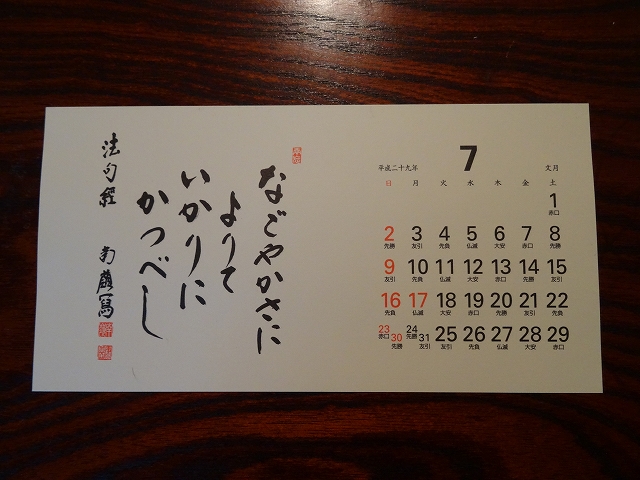 なごやかさに
よりて
いかりに
かつべし
法句經
平成二十九年
7
文月
日 月 火 水 木 金 土
1
赤口
2 3 4 5 6 7 8
先勝 友引 先負 仏滅 大安 赤口 先勝
9 10 11 12 13 14 15
友引 先負 仏滅 大安 赤口 先勝 友引
16 17 18 19 20 21 22
先負 仏滅 大安 赤口 先勝 友引 先負
23 24 25 26 27 28 29
赤口 先勝 友引 先負 仏滅 大安 赤口
30 31
先勝 友引